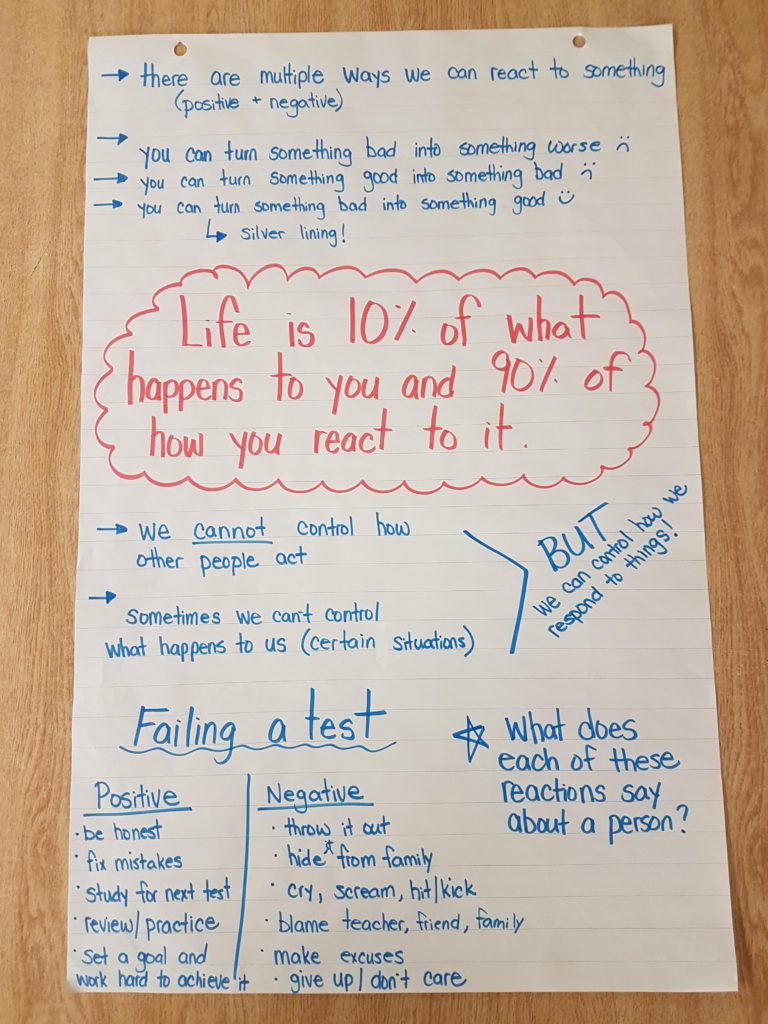 → there are multiple ways we can react to something
(positive + negative)
→ you can turn something bad into something worse ☹
→ you can turn something good into something bad ☹
→ you can turn something bad into something good ☺
↳ silver lining!
Life is 10% of what
happens to you and 90% of
how you react to it.
→ we cannot control how
other people act
→ sometimes we can't control
what happens to us (certain situations)
BUT
we can control how we
respond to things!
Failing a test
Positive
· be honest
· fix mistakes
· study for next test
· review/practice
· set a goal and
work hard to achieve it
Negative
· throw it out
· hide* from family
· cry, scream, hit/kick
· blame teacher, friend, family
· make excuses
· give up/don't care
☆ What does
each of these
reactions say
about a person?